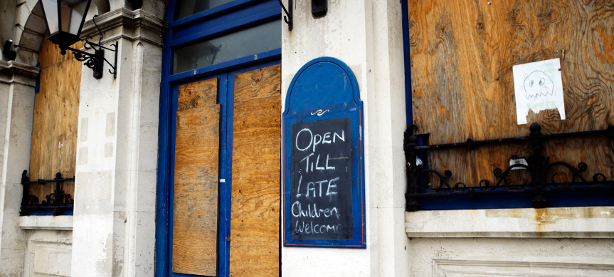 OPEN
TILL
LATE
Children
WELCOME